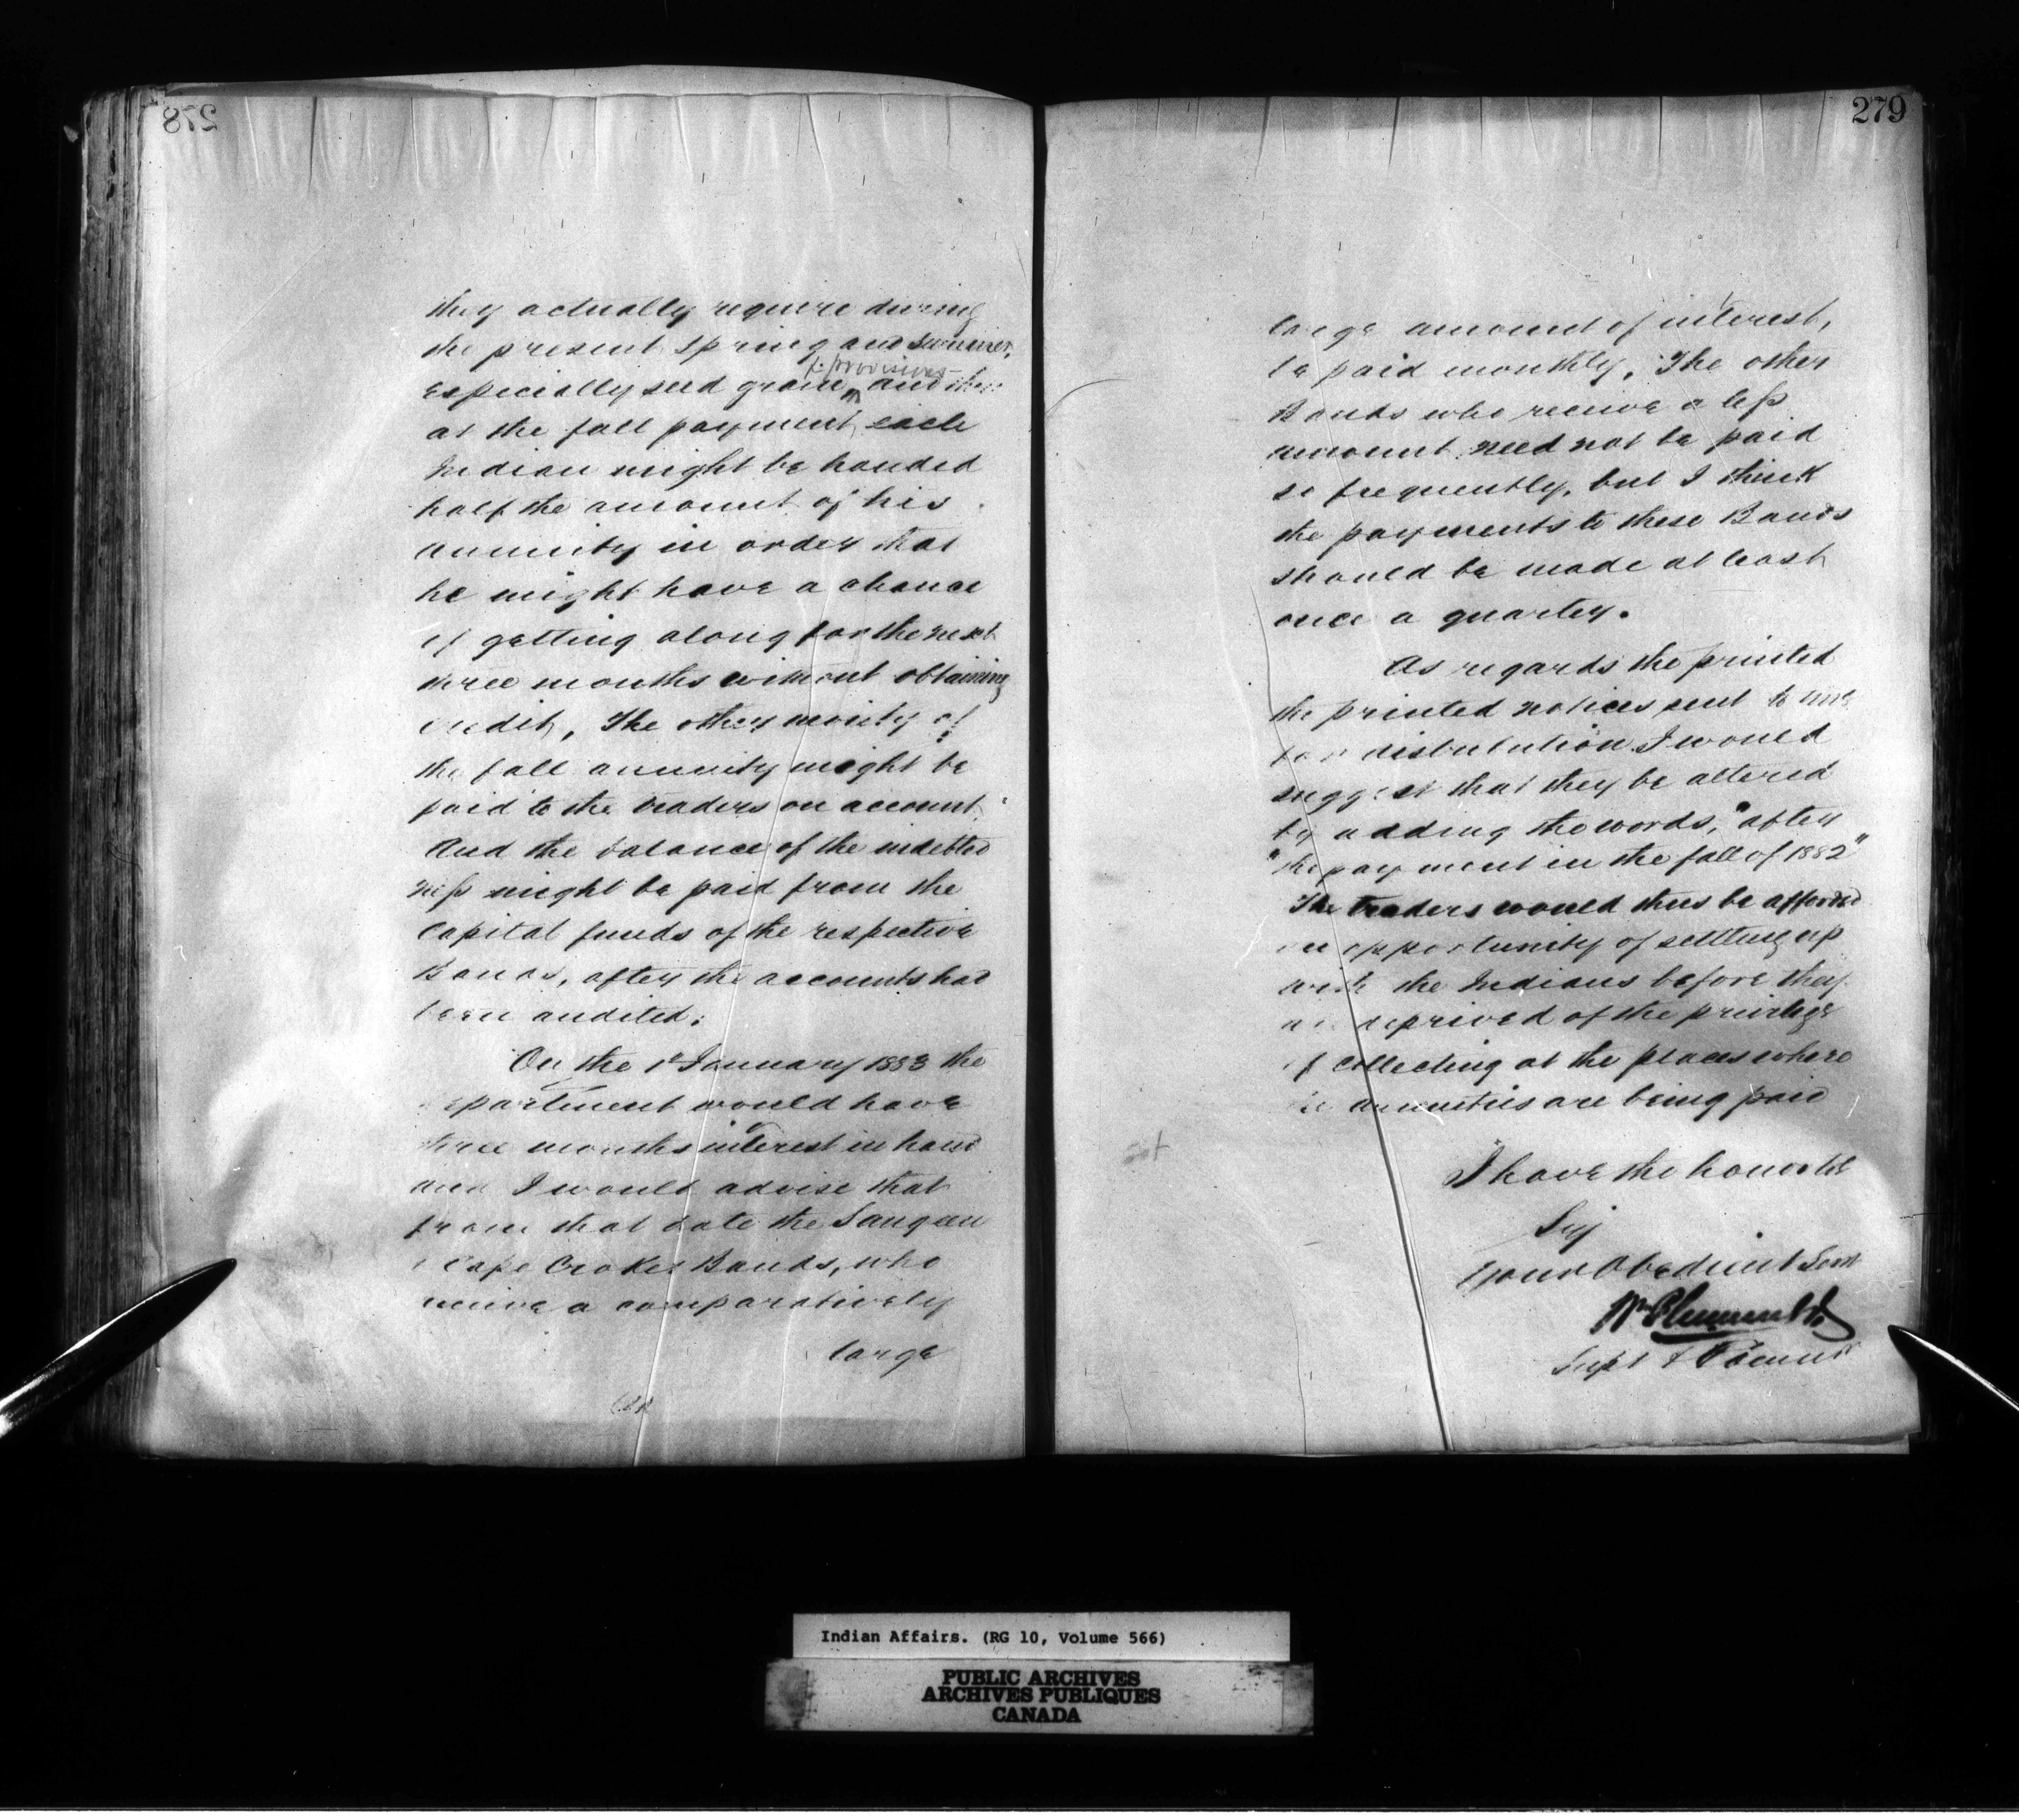 278
they actually require during
the present spring and summer,
& provisions
especially seed grain, and then
at the fall payment, each
Indian might be handed
half the amount of his
annuity in order that
he might have a chance
of getting along for the next
three months without obtaining
credit, The other moiety of
the fall annuity might be
paid to the traders on account,
And the balance of the indebted
ness might be paid from the
Capital funds of the respective
Bands, after the accounts had
been audited.
On the 1st January 1883 the
Department would have
three months interest in hand
and I would advise that
from that date the Saugeen
& Cape Croker Bands, who
receive a comparatively
large
279
large amount of interest,
be paid monthly, The other
Bands who receive a less
amount need not be paid
so frequently, but I think
the payments to these Bands
should be made at least
once a quarter.
As regards the printed
the printed notices sent to me
for distribution I would
suggest that they be altered
by adding the words, "after
"the payment in the fall of 1882"
The traders would thus be afforded
an opportunity of settling up
with the Indians before they
are deprived of the privilege
of collecting at the places where
the annuities are being paid
I have the honor to be
Sir
Your Obedient Servt
Wm Plummer
Supt &
Indian Affairs. (RG 10, Volume 566)
PUBLIC ARCHIVES
ARCHIVES PUBLIQUES
CANADA